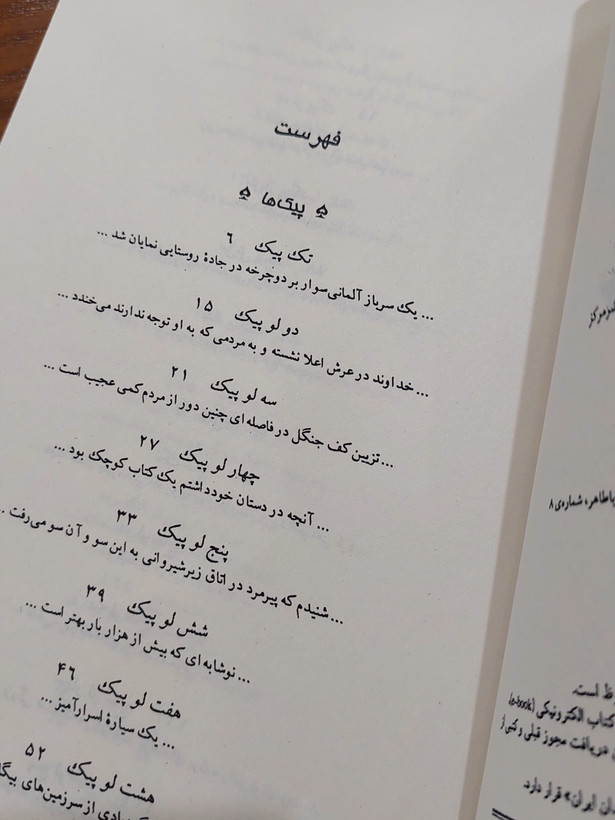 فهرست
♤ پیک‌ها ♤
تک پیک ۶
... یک سرباز آلمانی سوار بر دوچرخه در جادهٔ روستایی نمایان شد ...
دو لو پیک ۱۵
... خداوند در عرش اعلا نشسته و به مردمی که به او توجه ندارند می‌خندد ...
سه لو پیک ۲۱
... تزیین کف جنگل در فاصله ای چنین دور از مردم کمی عجیب است ...
چهار لو پیک ۲۷
... آنچه در دستان خود داشتم یک کتاب کوچک بود ...
پنج لو پیک ۳۳
... شنیدم که پیرمرد در اتاق زیرشیروانی به این سو و آن سو می‌رفت ...
شش لو پیک ۳۹
... نوشابه ای که بیش از هزار بار بهتر است ...
هفت لو پیک ۴۶
... یک سیارهٔ اسرارآمیز ...
هشت لو پیک ۵۲
از سرزمین‌های
شماره‌ی ۸
است.
کتاب الکترونیکی (e-book)
دریافت مجوز قبلی و کتبی از
ایران» قرار دارد.